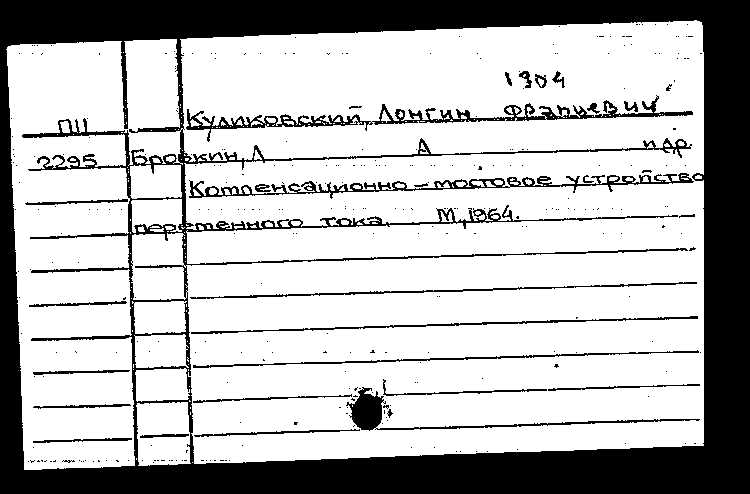 1904
Куликовский, Лонгин Францевич
П11
2295 Бровкин, Л А и др.
Компенсационно-мостовое устройство
переменного тока. М., 1964.